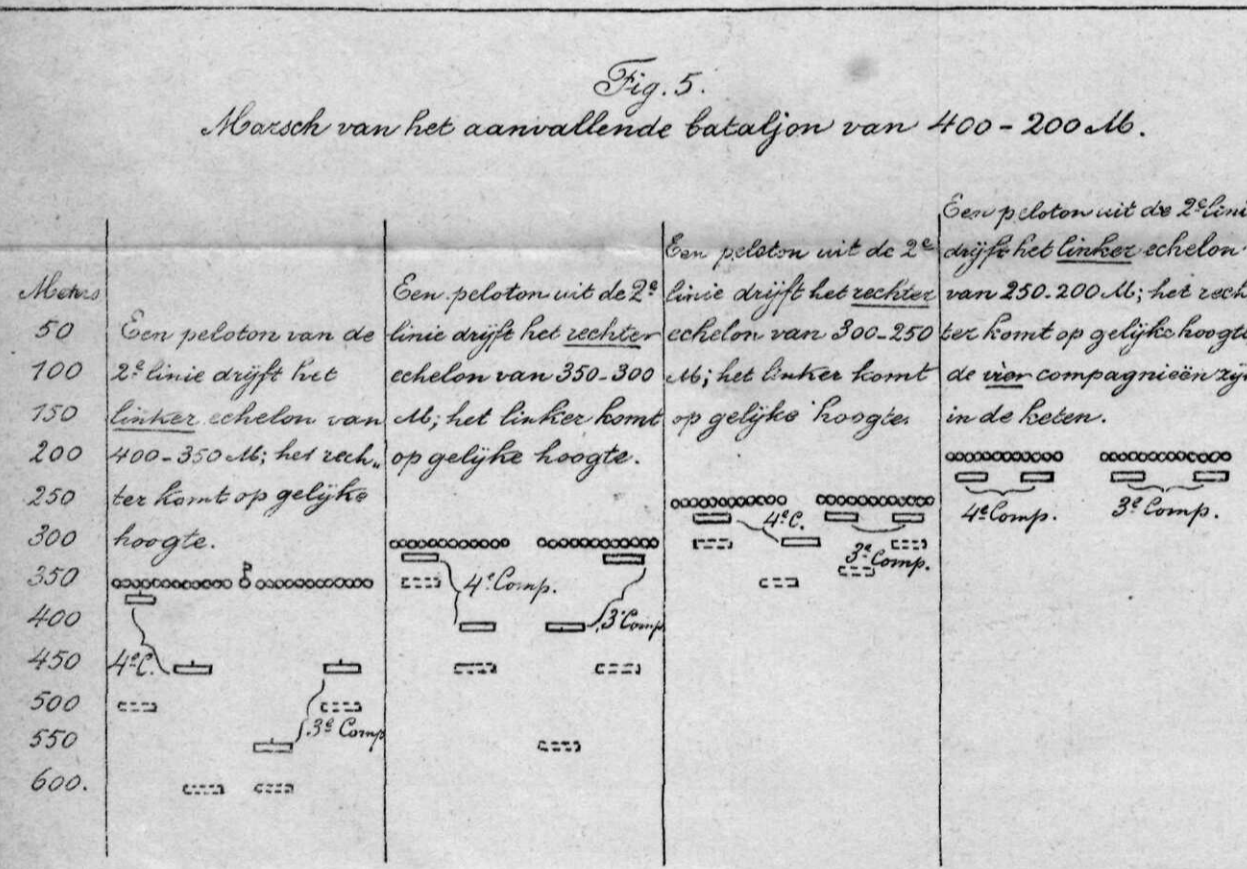 Fig. 5.
Marsch van het aanvallende bataljon van 400-200 M.
Meters
50
100
150
200
250
300
350
400
450
500
550
600.
Een peloton van de
2e linie drijft het
linker echelon van
400-350 M; het rech„
ter komt op gelijke
hoogte.
4e C.
3e Comp
Een peloton uit de 2e
linie drijft het rechter
echelon van 350-300
M; het linker komt
op gelijke hoogte.
4e Comp.
3e Comp
Een peloton uit de 2e
linie drijft het rechter
echelon van 300-250
M; het linker komt
op gelijke hoogte.
4e C.
3e Comp.
Een peloton uit de 2e lini
drijft het linker echelon
van 250-200 M; het rech
ter komt op gelijke hoogte
de vier compagnieën zij
in de keten.
4e Comp.
3e Comp.